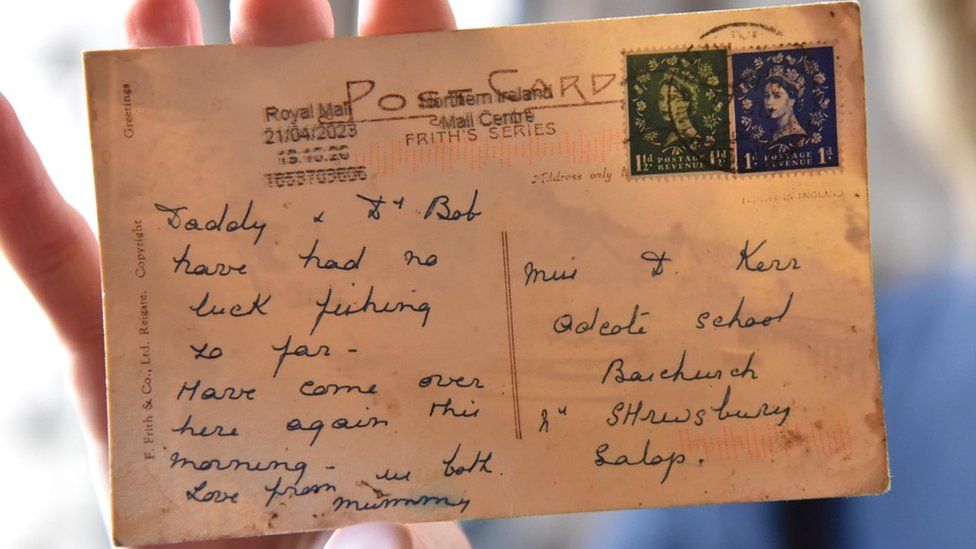 Greetings
F. Frith & Co., Ltd. Reigate. Copyright
POST CARD
FRITH'S SERIES
Royal Mail
21/04/2023
Northern Ireland
Mail Centre
Address only
1½d
POSTAGE
REVENUE
1d
POSTAGE
REVENUE
1d
Daddy & Dr Bob
have had no
luck fishing
so far -
Have come over
here again this
morning -
Love from us both
mummy
Miss D. Kerr
Adcote School
Baschurch
Nr SHrewsbury
Salop.